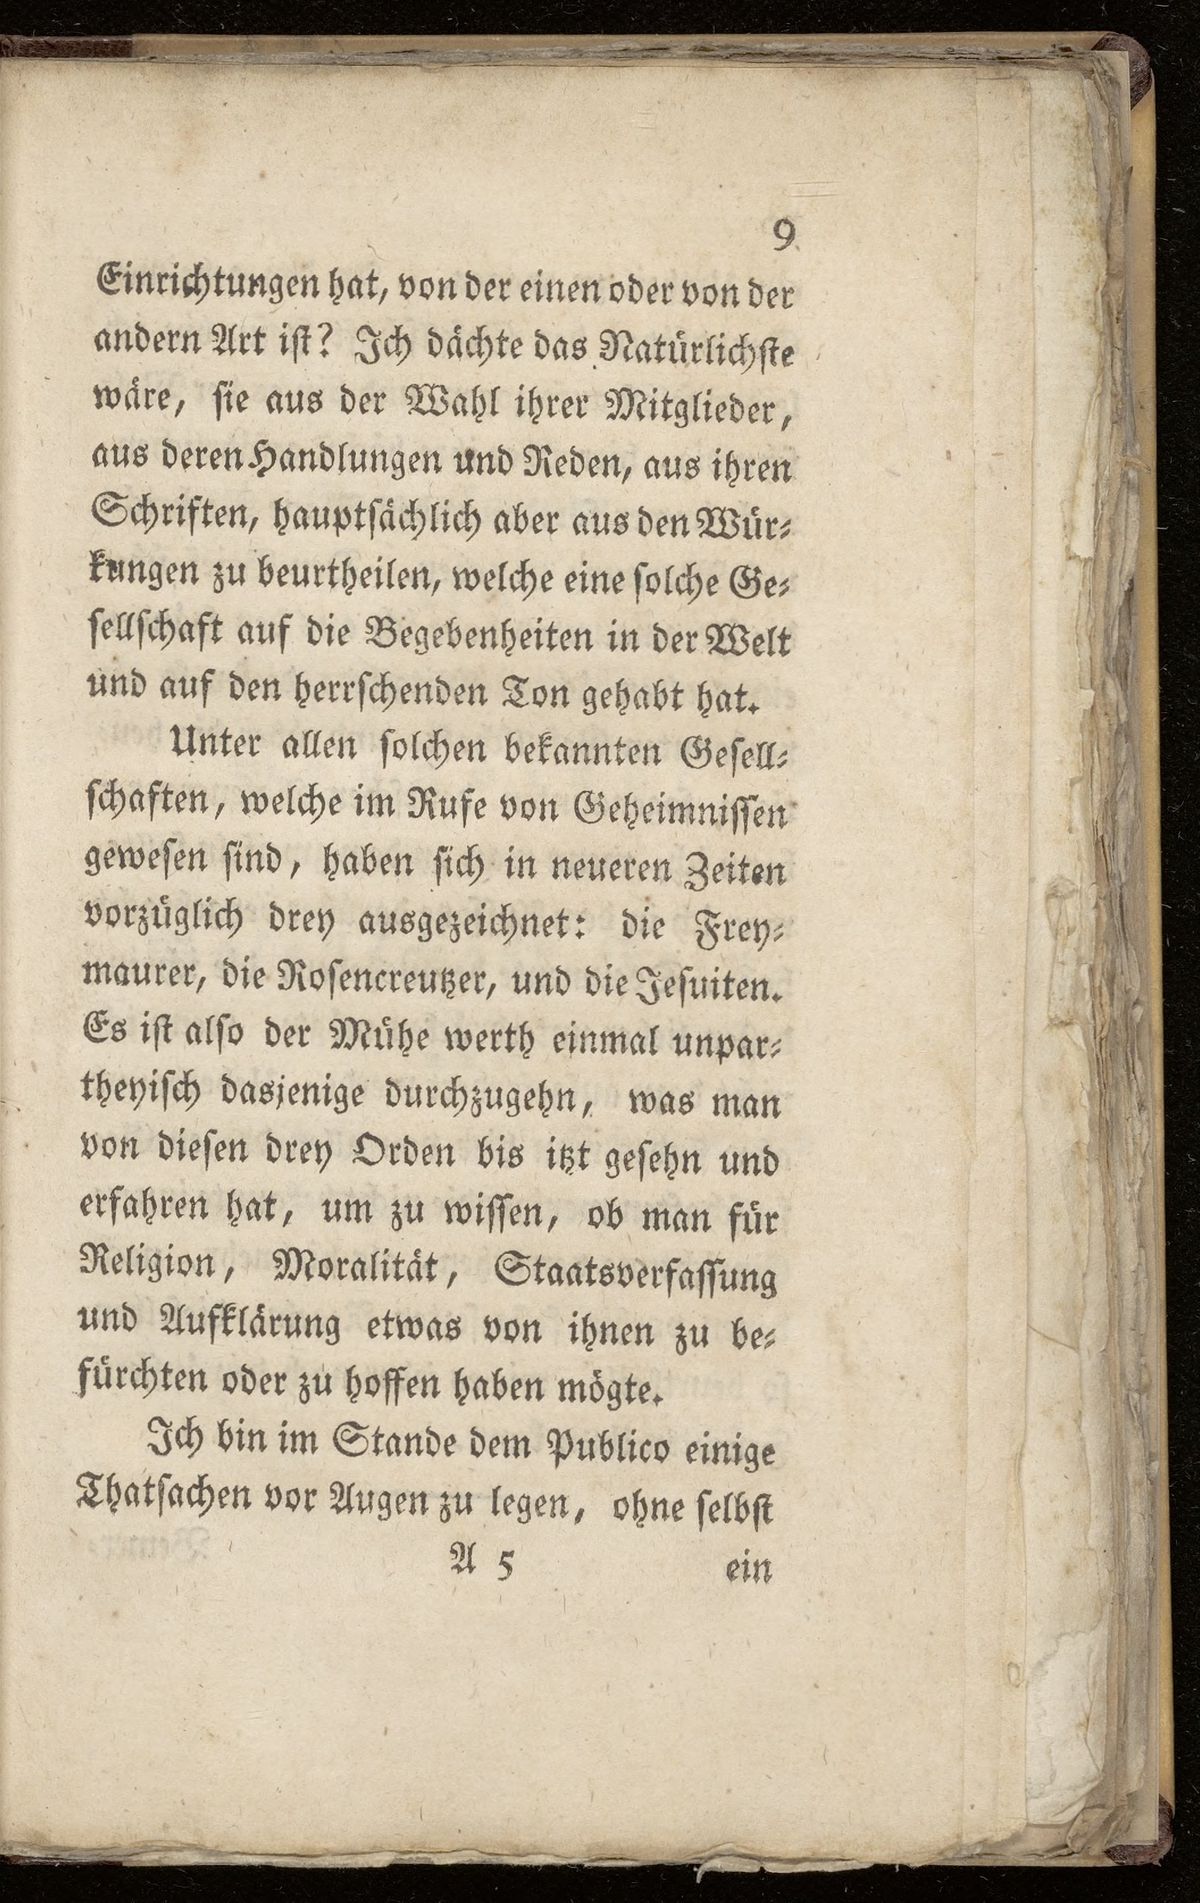 9
Einrichtungen hat, von der einen oder von der
andern Art ist? Ich dächte das Natürlichste
wäre, sie aus der Wahl ihrer Mitglieder,
aus deren Handlungen und Reden, aus ihren
Schriften, hauptsächlich aber aus den Wür-
kungen zu beurtheilen, welche eine solche Ge-
sellschaft auf die Begebenheiten in der Welt
und auf den herrschenden Ton gehabt hat.
Unter allen solchen bekannten Gesell-
schaften, welche im Rufe von Geheimnissen
gewesen sind, haben sich in neueren Zeiten
vorzüglich drey ausgezeichnet: die Frey-
maurer, die Rosencreutzer, und die Jesuiten.
Es ist also der Mühe werth einmal unpar-
theyisch dasjenige durchzugehn, was man
von diesen drey Orden bis itzt gesehn und
erfahren hat, um zu wissen, ob man für
Religion, Moralität, Staatsverfassung
und Aufklärung etwas von ihnen zu be-
fürchten oder zu hoffen haben mögte.
Ich bin im Stande dem Publico einige
Thatsachen vor Augen zu legen, ohne selbst
A 5 ein